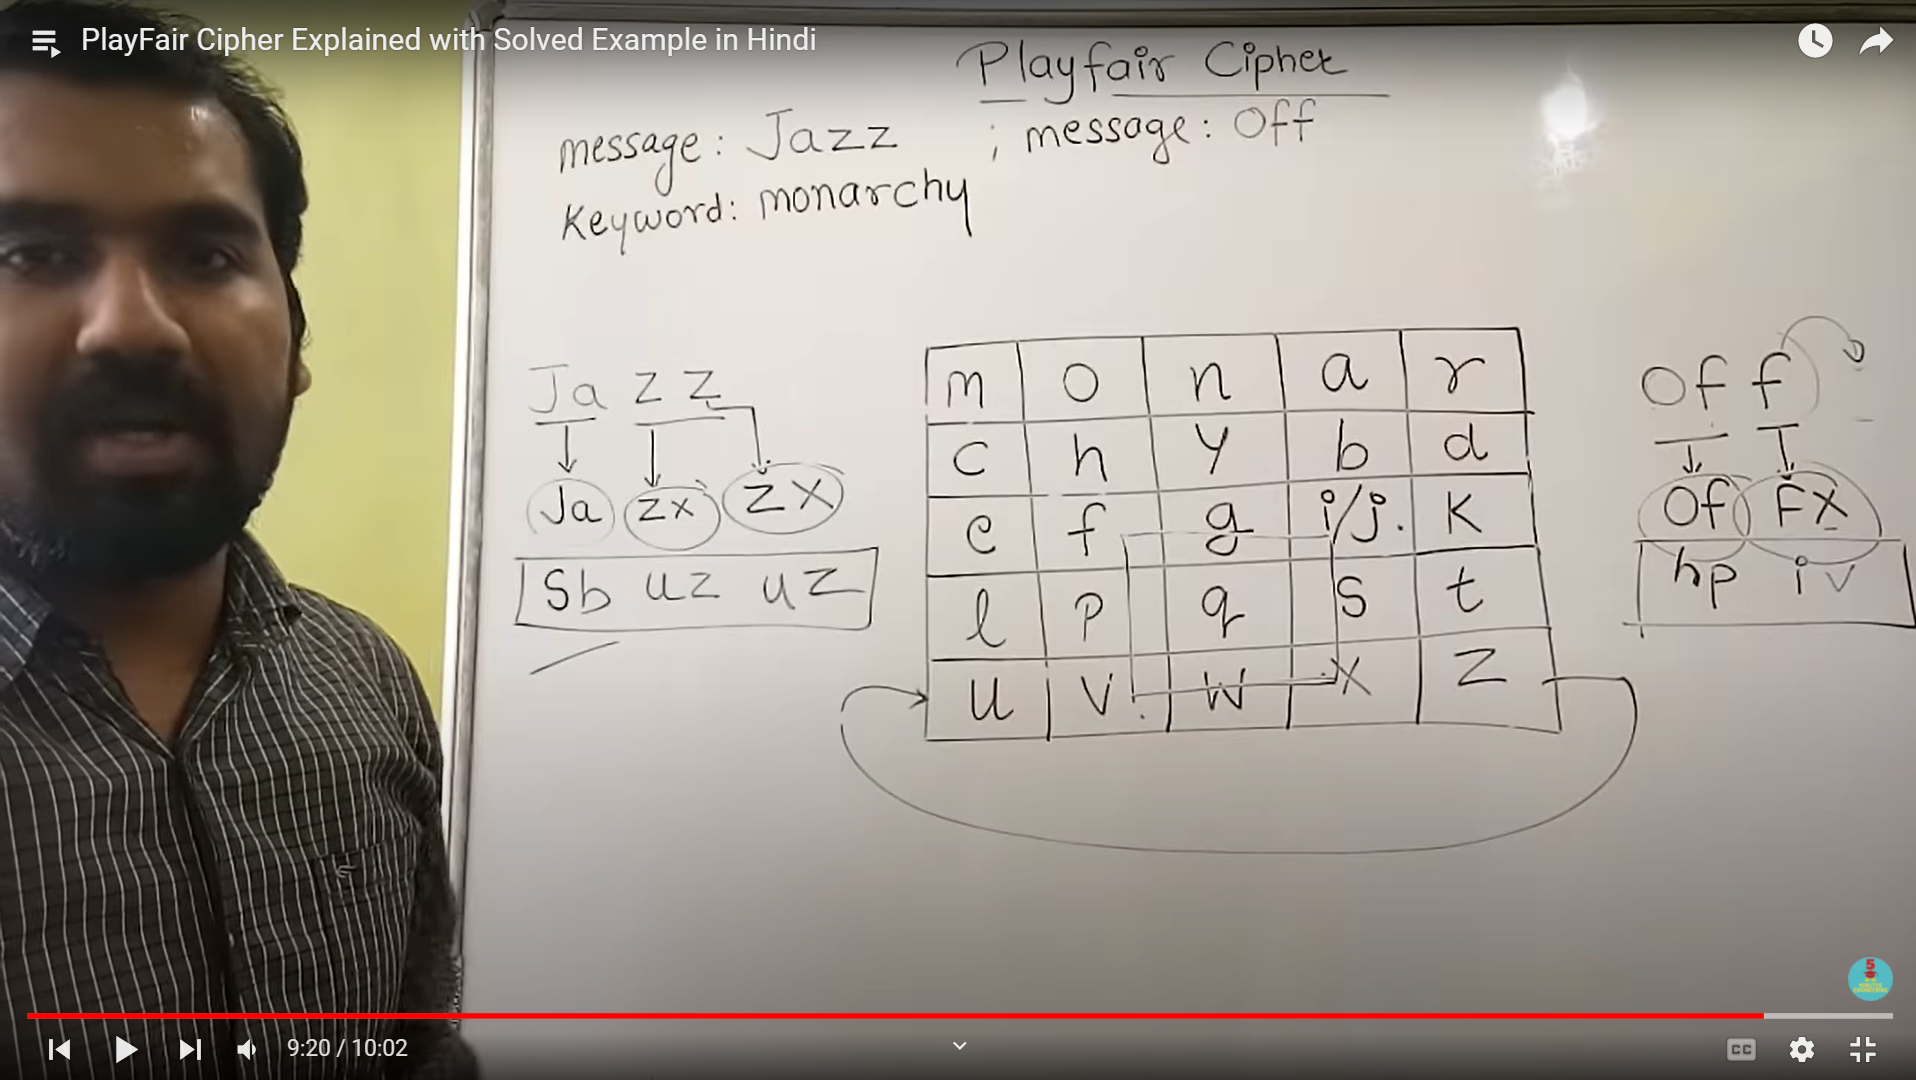 PlayFair Cipher Explained with Solved Example in Hindi
Playfair Cipher
message: Jazz ; message: Off
Keyword: monarchy
Ja z z
Ja zx zx
Sb uz uz
m o n a r
c h y b d
e f g i/j. k
l p q s t
u v. w .x z
Of f
Of Fx
hp iv
5
9:20 / 10:02
CC